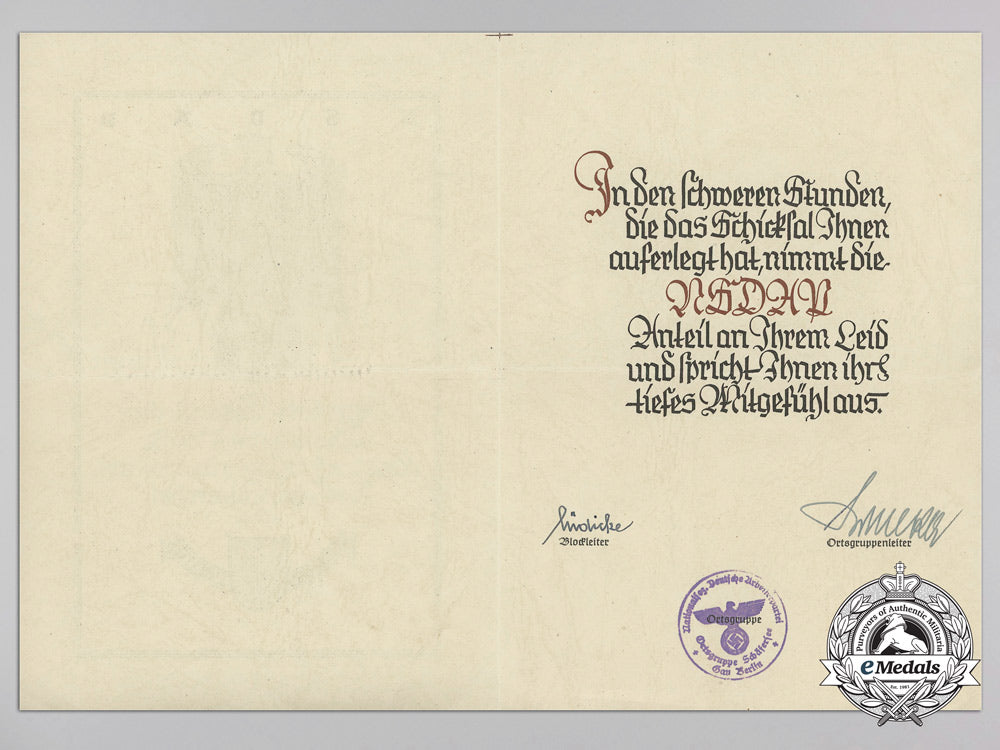 In den schweren Stunden,
die das Schicksal Ihnen
auferlegt hat, nimmt die
NSDAP
Anteil an Ihrem Leid
und spricht Ihnen ihr
tiefes Mitgefühl aus.
Lüdicke
Blockleiter
Ortsgruppenleiter
Nationalsoz. Deutsche Arbeiterpartei
Ortsgruppe
Ortsgruppe Schäfersee
Gau Berlin
Purveyors of Authentic Militaria
eMedals
Est. 1983